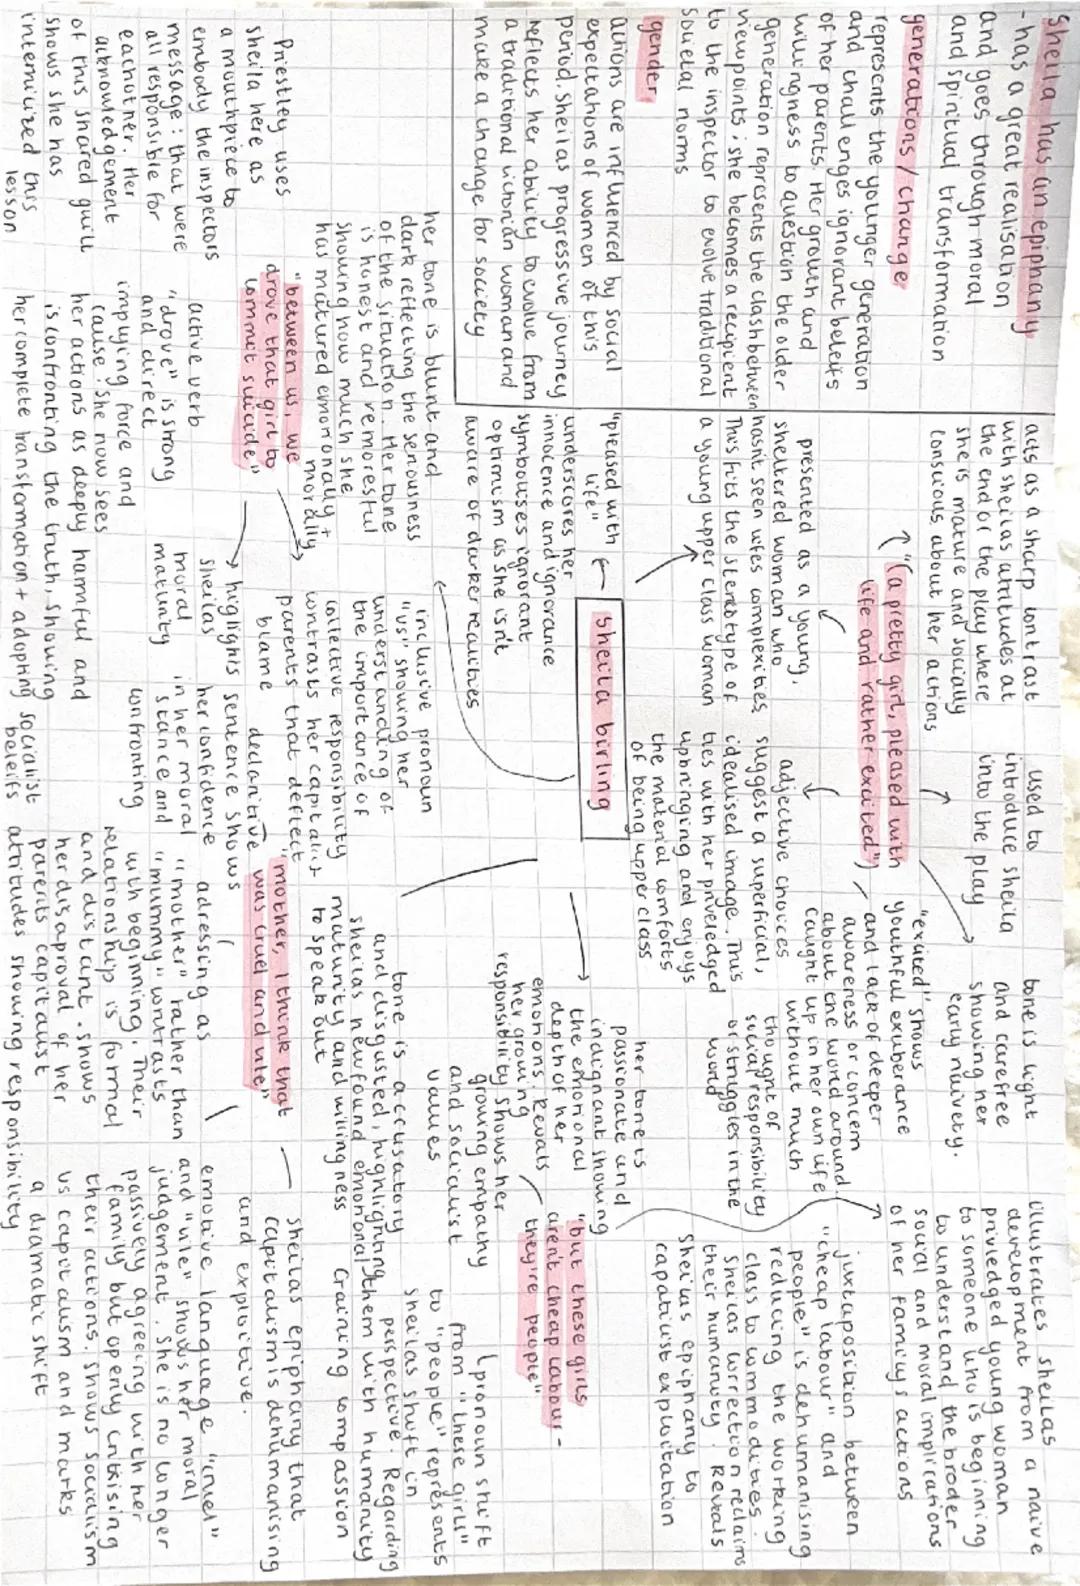 Sheila has an epiphany
- has a great realisation
and goes through moral
and spiritual transformation
generations / change
represents the younger generation
and challenges ignorant beleifs
of her parents. Her growth and
willingness to question the older
generation represents the clash between
viewpoints; she becomes a recipient
to the inspector to evolve traditional
societal norms
gender
actions are influenced by social
expectations of women of this
period. Sheilas progressive journey
reflects her ability to evolve from
a traditional victorian woman and
make a change for society
acts as a sharp contrast
with sheilas attitudes at
the end or the play where
she is mature and socially
conscious about her actions
used to
introduce sheila
into the play
tone is light
and carefree
showing her
early niavety.
illustrates sheilas
development from a naive
privledged young woman
to someone who is beginning
to understand the broder
social and moral implications
of her familys actions
"(a pretty girl, pleased with
life and rather excited")
"exited" shows
youthful exuberance
and lack of deeper
awareness or concern
about the world around
caught up in her own life
without much
thought of
social responsibility
or struggles in the
world
presented as a young,
sheltered woman who
hasn't seen lifes complexities
This fits the steriotype of
a young upper class woman
adjective choices
suggest a superficial,
idealised image. This
ties with her priveledged
upbringing and enjoys
the material comforts
of being upper class
"pleased with
life"
underscores her
innocence and ignorance
symbolises ignorant
optimism as she isn't
aware of darker realities
sheila birling
her tone is
passionate and
indignant showing
the emotional
depth of her
emotions. Revals
her growing
responsibility shows her
growing empathy
and socialist
values
"but these girls
aren't cheap labour -
they're people"
juxtaposition between
"cheap labour" and
people" is dehumanising
reducing the working
class to commodities.
Sheilas correction reclaims
their humanity. Reveals
Sheilas epiphany to
capatilist exploitation
pronoun shift
from "these girls"
to "people" represents
sheilas shift in
perspective. Regarding
them with humanity
Craining compassion
her tone is blunt and
dark reflecting the seriousness
of the situation. Her tone
is honest and remorseful
showing how much she
has matured emotionally +
morally
"between us, we
drove that girl to
commit suicide"
Priestley uses
sheila here as
a mouthpiece to
embody the inspectors
message: that were
all responsible for
eachother. Her
acknowledgement
of this shared guilt
shows she has
internilized this
lesson
active verb
"drove" is strong
and direct
impying force and
cause. She now sees
her actions as deeply harmful and
is confronting the truth, showing
her complete transformation + adopting socialist
beleifs
inclusive pronoun
"us" showing her
understanding of
the importance of
collective responsibility
contrasts her capitalist
parents that deflect
blame
highlights
sheilas
moral
maturity
declaritive
sentence shows
her confidence
in her moral
stance and
confronting
tone is accusatory
and disgusted, highlighting
sheilas newfound emotional
maturity and willingness
to speak out
"mother, I think that
was cruel and vile"
adressing as
"mother" rather than
"mummy" contrasts
with beginning. Their
relationship is formal
and distant. shows
her disaproval of her
parents capitalist
attitudes showing responsibility
Sheilas epiphany that
capitalism is dehumanising
and exploitive.
emotive language "cruel"
and "vile" shows her moral
judgement. She is no longer
passively agreeing with her
family but openly critisising
their actions. Shows socialism
vs capitalism and marks
a dramatic shift